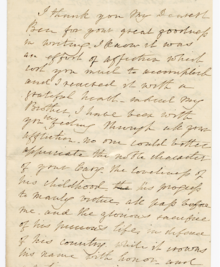 I thank you My Dearest
for your great goodness
in writing, I know it was
an effort of affection which
cost you much to accomplish
and I received it with a
grateful heart. indeed My
Brother, I have been with
you feeling through all your
affliction, no one could better
appreciate the noble character
of your boy, the loveliness of
his childhood, his progress
to manly virtues all pass before
me, and the glorious sacrifice
of his precious life in defence
of his country, while it crowns
his name with honor and